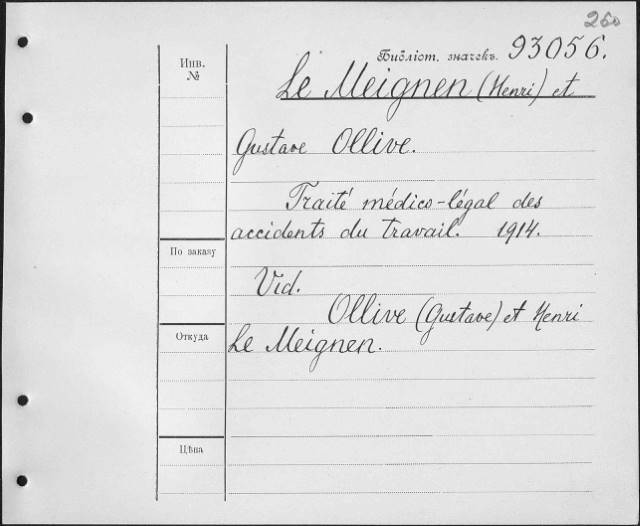 260
Инв. №
Библіот. значекъ. 93056.
Le Meignen (Henri) et
Gustave Ollive.
Traité médico-légal des
accidents du travail. 1914.
По заказу
Vid.
Ollive (Gustave) et Henri
Откуда
Le Meignen.
Цѣна